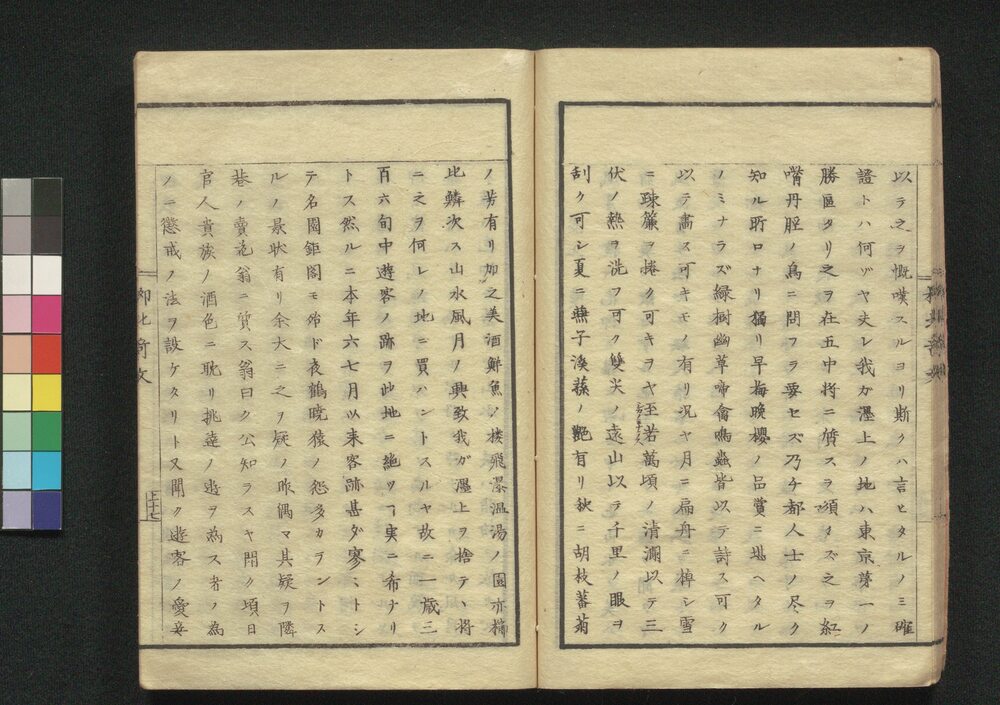 以テ之ヲ慨嘆スルヨリ斯クハ言ヒタルノミ確
證トハ何ゾヤ夫レ我ガ墨上ノ地ハ東京第一ノ
勝區タリ之ヲ在五中将ニ質スヲ須タズ之ヲ紅
嘴丹脛ノ鳥ニ問フヲ要セズ乃チ都人士ノ尽ク
知ル所ロナリ獨リ早梅晩櫻ノ品賞ニ堪ヘタル
ノミナラズ緑樹幽草啼禽鳴蟲皆以テ詩ス可ク
以テ畵ス可キモノ有リ况ヤ月ニ扁舟ニ棹シ雪
ニ疎簾ヲ捲ク可キヲヤ至若萬頃ノ清瀾以テ三
伏ノ熱ヲ洗フ可ク雙尖ノ遠山以テ千里ノ眼ヲ
刮ク可シ夏ニ燕子溪蓀ノ艶有リ秋ニ胡枝蕃菊
ノ芳有リ加之美酒鮮魚ノ楼飛瀑温湯ノ園亦櫛
比鱗次ス山水風月ノ興致我ガ墨上ヲ捨テヽ将
ニ之ヲ何レノ地ニ買ハントスルヤ故ニ一歳三
百六旬中遊客ノ跡ヲ此地ニ絶ツヿ実ニ希ナリ
トス然ルニ本年六七月以来客跡甚ダ寥ミトシ
テ名園鉅閣モ殆ド夜鶴暁猿ノ怨多カラントス
ルノ景状有リ余大ニ之ヲ疑ノ昨偶マ其疑ヲ隣
巷ノ賣花翁ニ質ス翁曰ク公知ラスヤ聞ク頃日
官人貴族ノ酒色ニ耽リ挑達ノ遊ヲ為ス者ノ為
ノニ懲戒ノ法ヲ設ケタリト又聞ク遊客ノ愛妾
柳北奇文
上十七